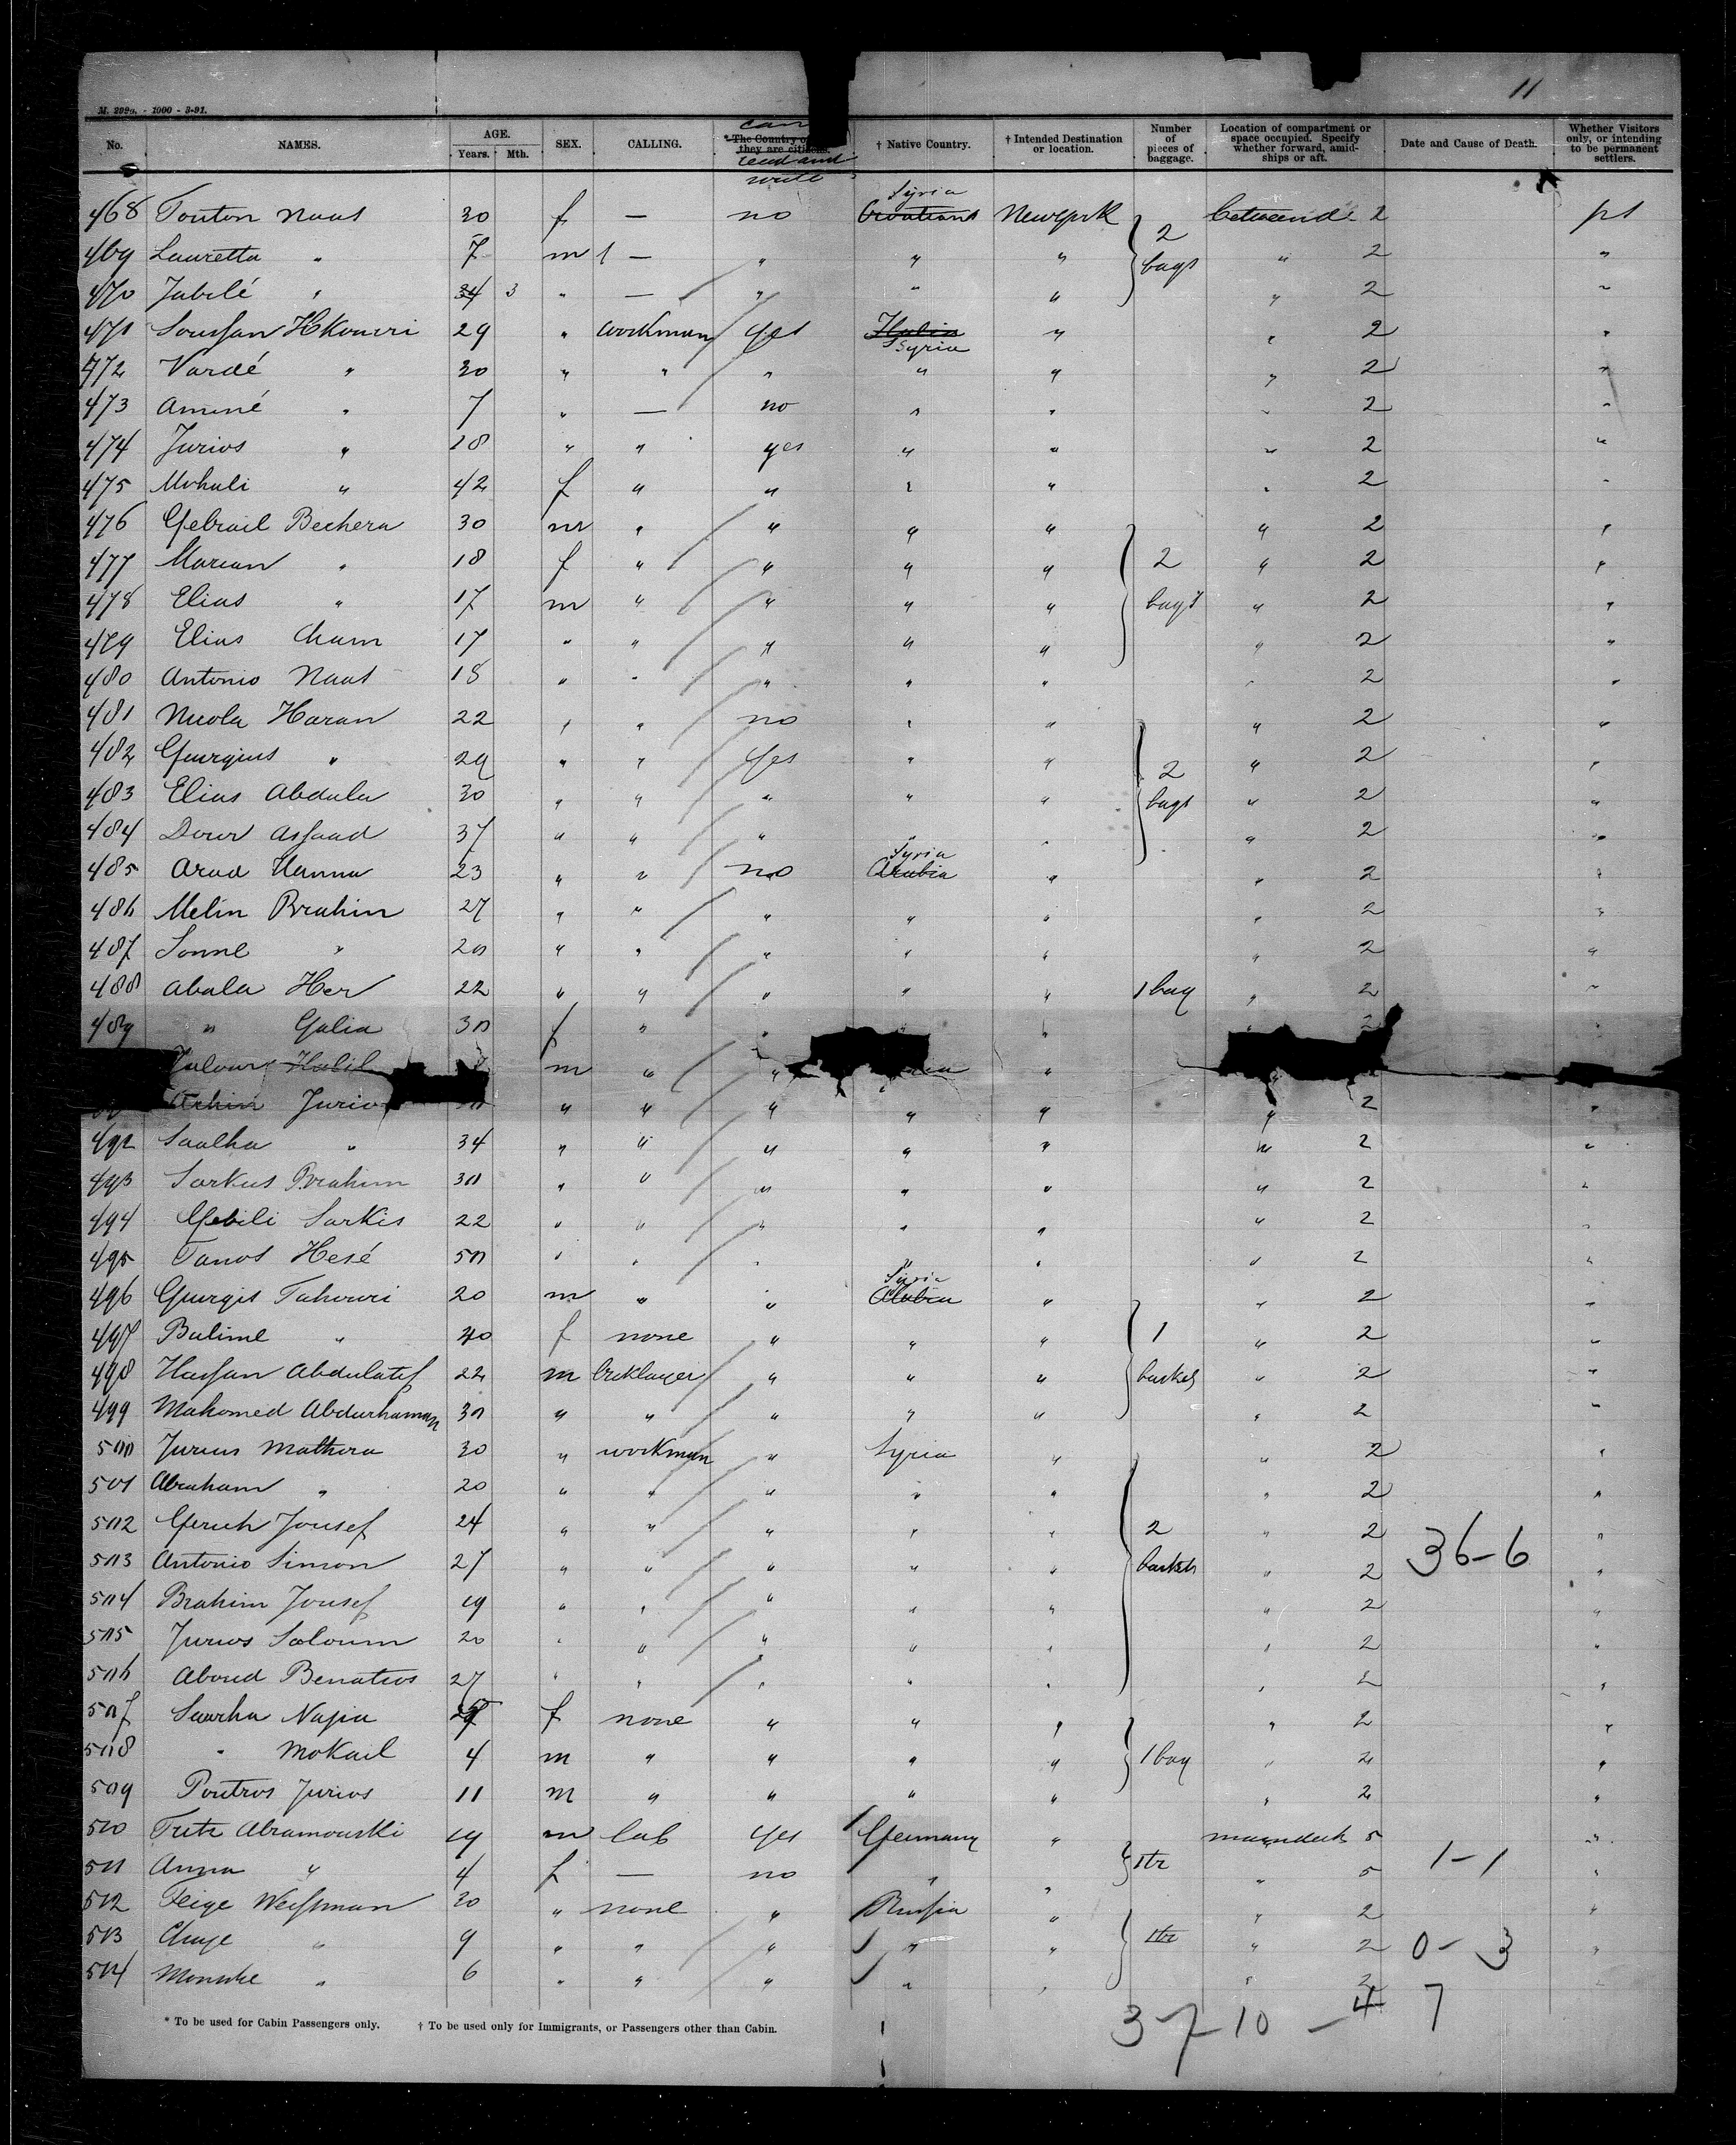 11
M. 299a. - 1000 - 3-91.
No. NAMES. AGE. Years. Mth. SEX. CALLING. * The Country of they are citizens. can read and write † Native Country. † Intended Destination or location. Number of pieces of baggage. Location of compartment or space occupied. Specify whether forward, amidships or aft. Date and Cause of Death. Whether Visitors only, or intending to be permanent settlers.
Syria
468 Touton Naas 30 f — no Newyork 2 ps
469 Lauretta " 7 m 1 — " " " 2 bags " 2 "
470 Jabilé " 34 3 " — " " " " 2 "
471 Soussan Hkouri 29 " workman yes Italia Syria " " 2 "
472 Vardé " 30 " " " " " " 2 "
473 Aminé " 7 " — no " " " 2 "
474 Jurios " 18 " " yes " " " 2 "
475 Mohali " 42 f " " " " " 2 "
476 Gebrail Bechera 30 m " " " " " 2 "
477 Marian " 18 f " " " " 2 " 2 "
478 Elias " 17 m " " " " bags " 2 "
479 Elias Cham 17 " " " " " " 2 "
480 Antonio Naas 18 " " " " " " 2 "
481 Nicola Haran 22 " " no " " " 2 "
482 Georgius " 29 " " yes " " 2 " 2 "
483 Elias Abdula 30 " " " " " bags " 2 "
484 Dour Assaad 37 " " " " " " 2 "
485 Arad Hanna 23 " " no Syria Arabia " " 2 "
486 Melin Brahim 27 " " " " " " 2 "
487 Sonne " 20 " " " " " " 2 "
488 Abala Her 22 " " " " " 1 bag " 2 "
489 " Galia 30 f " " " 2 "
Halil m " " "
Jurio " " " " " " 2 "
492 Saalha " 34 " " " " " " 2 "
493 Sarkus Brahim 30 " " " " " " 2 "
494 Gebili Sarkis 22 " " " " " " 2 "
495 Tanos Hesé 50 " " " " " " 2 "
496 Gurgis Tahouri 20 m " " Syria " " 2 "
497 Balime " 40 f none " " " 1 " 2 "
498 Hassan Abdulatif 22 m bricklayer " " " basket " 2 "
499 Mahomed Abdurhaman 30 " " " " " " 2 "
500 Jurius Mathera 30 " workman " Syria " " 2 "
501 Abraham " 20 " " " " " " 2 "
502 Gerich Jousef 24 " " " " " 2 " 2 36-6 "
503 Antonio Simon 27 " " " " " baskets " 2 "
504 Brahim Jousef 19 " " " " " " 2 "
505 Jurios Saloum 20 " " " " " " 2 "
506 Aboud Benatios 27 " " " " " " 2 "
507 Saarha Najia f none " " " " 2 "
508 " Mokail 4 m " " " " 1 bag " 2 "
509 Poutros Jurios 11 m " " " " " 2 "
510 Fritz Abramowski 19 m lab yes Germany " maindeck 5 "
511 Anna " 4 f — no " " " 5 1-1 "
512 Feige Weissman 30 " none " Russia " " 2 "
513 Chaje " 9 " " " " " " 2 0-3 "
514 " 6 " " " " " " 2 "
37-10-4 7
* To be used for Cabin Passengers only. † To be used only for Immigrants, or Passengers other than Cabin.